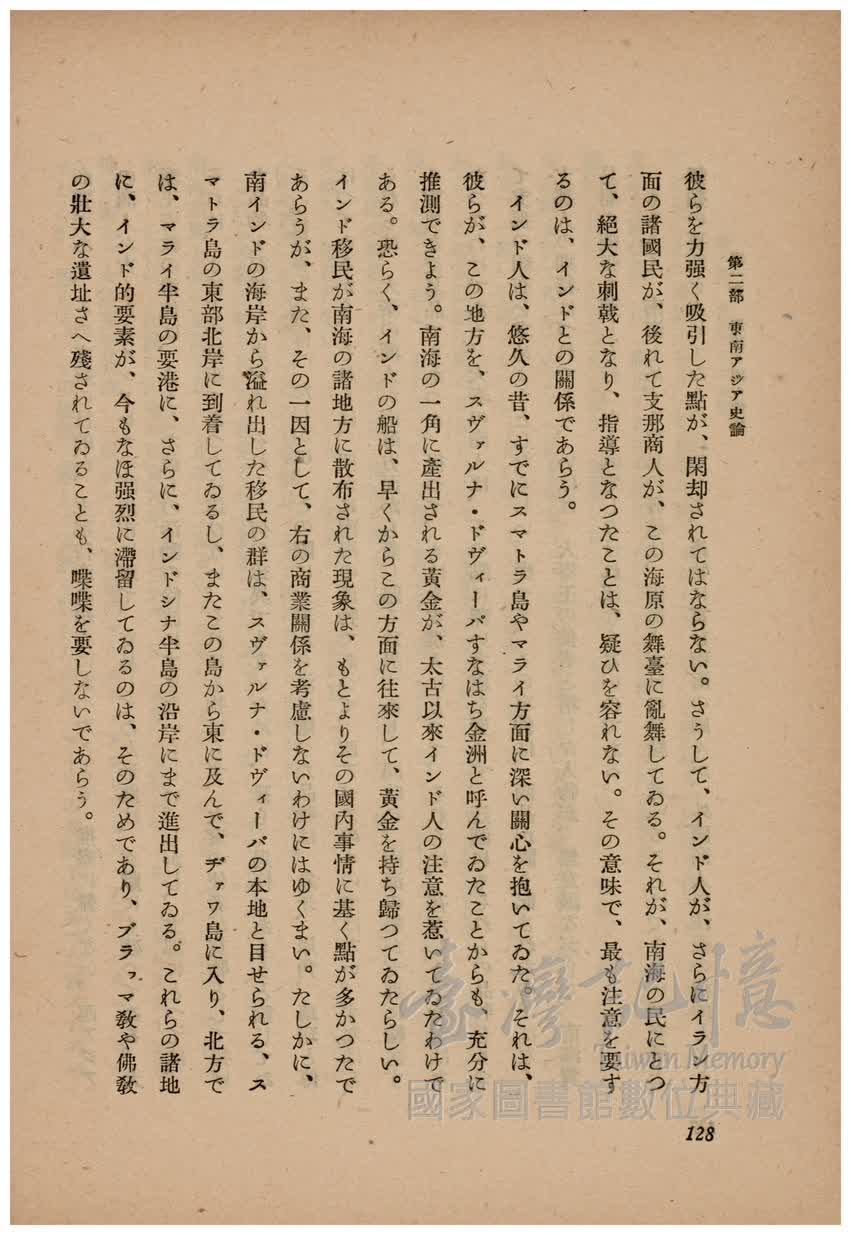 第二部 東南アジア史論
彼らを力强く吸引した點が、閑却されてはならない。さうして、インド人が、さらにイラン方
面の諸國民が、後れて支那商人が、この海原の舞臺に亂舞してゐる。それが、南海の民にとつ
て、絕大な刺戟となり、指導となつたことは、疑ひを容れない。その意味で、最も注意を要す
るのは、インドとの關係であらう。
インド人は、悠久の昔、すでにスマトラ島やマライ方面に深い關心を抱いてゐた。それは、
彼らが、この地方を、スヴァルナ・ドヴィーパすなはち金洲と呼んでゐたことからも、充分に
推測できよう。南海の一角に產出される黃金が、太古以來インド人の注意を惹いてゐたわけで
ある。恐らく、インドの船は、早くからこの方面に往來して、黃金を持ち歸つてゐたらしい。
インド移民が南海の諸地方に散布された現象は、もとよりその國內事情に基く點が多かつたで
あらうが、また、その一因として、右の商業關係を考慮しないわけにはゆくまい。たしかに、
南インドの海岸から溢れ出した移民の群は、スヴァルナ・ドヴィーパの本地と目せられる、ス
マトラ島の東部北岸に到着してゐるし、またこの島から東に及んで、ヂァワ島に入り、北方で
は、マライ半島の要港に、さらに、インドシナ半島の沿岸にまで進出してゐる。これらの諸地
に、インド的要素が、今もなほ强烈に滯留してゐるのは、そのためであり、ブラァマ敎や佛敎
の壯大な遺址さへ殘されてゐることも、喋喋を要しないであらう。
128
臺灣記憶
Taiwan Memory
國家圖書館數位典藏